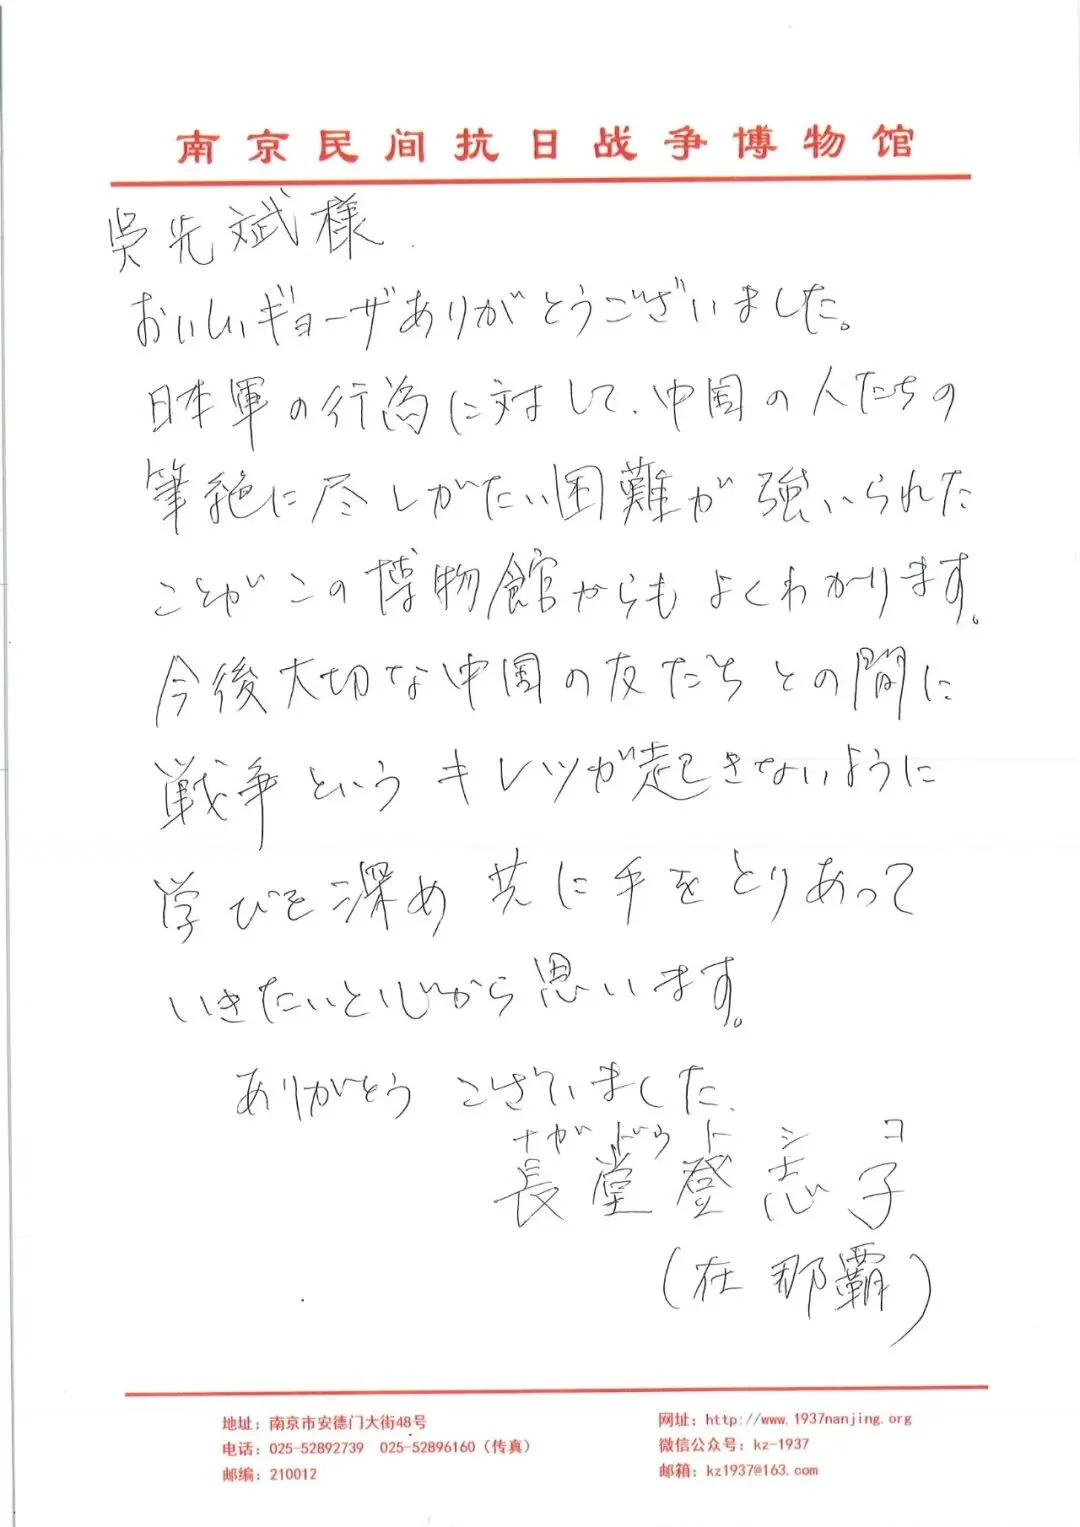 南京民间抗日战争博物馆
吳先斌様.
おいしいギョーザありがとうございました。
日本軍の行為に対して、中国の人たちの
筆絶に尽しがたい困難が強いられた
ことがこの博物館からもよくわかります。
今後大切な中国の友たちとの間に
戦争というキレツが起きないように
学びを深め共に手をとりあって
いきたいと心から思います。
ありがとうございました.
ナガドウトシコ
長堂登志子
(在那覇)
地址：南京市安德门大街48号
电话：025-52892739 025-52896160（传真）
邮编：210012
网址：http://www.1937nanjing.org
微信公众号：kz-1937
邮箱：kz1937@163.com